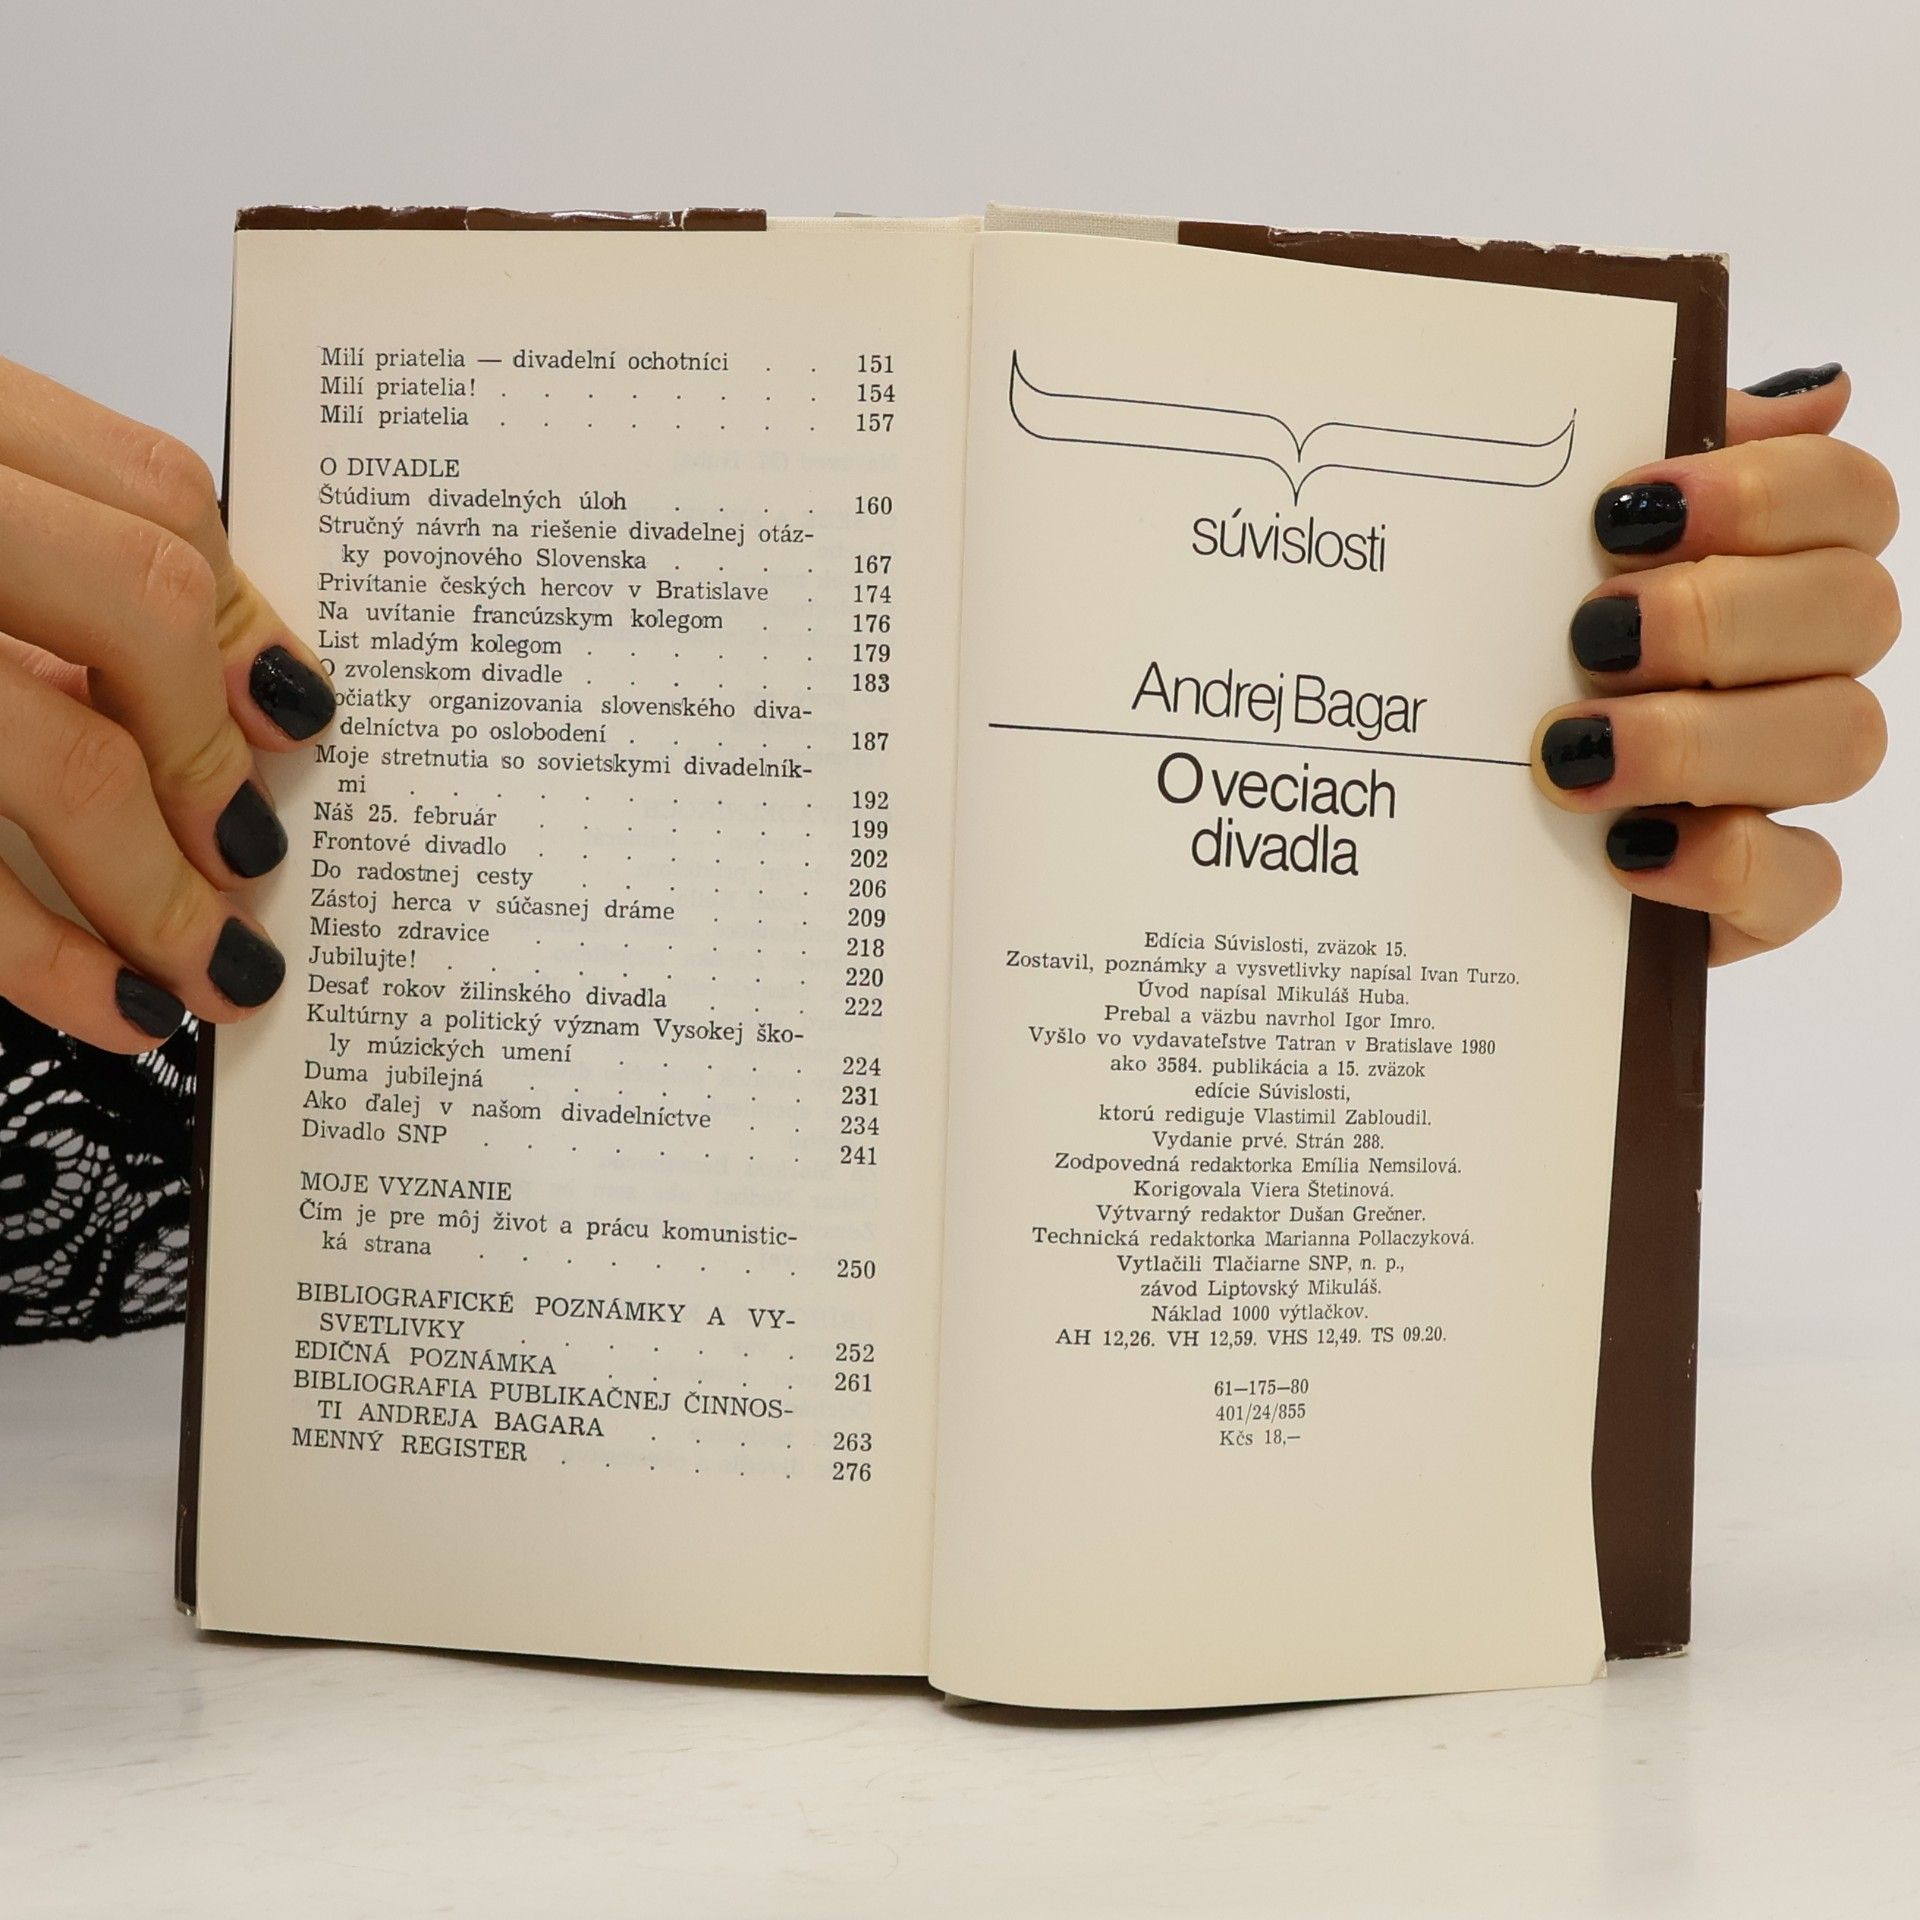 Milí priatelia — divadelní ochotníci . . 151
Milí priatelia! . . . . . . . . 154
Milí priatelia . . . . . . . . 157
O DIVADLE
Štúdium divadelných úloh . . . . 160
Stručný návrh na riešenie divadelnej otáz-
ky povojnového Slovenska . . . . 167
Privítanie českých hercov v Bratislave . 174
Na uvítanie francúzskym kolegom . . 176
List mladým kolegom . . . . . . 179
O zvolenskom divadle . . . . . . 183
očiatky organizovania slovenského diva-
delníctva po oslobodení . . . . . 187
Moje stretnutia so sovietskymi divadelník-
mi . . . . . . . . . . 192
Náš 25. február . . . . . . . 199
Frontové divadlo . . . . . . . 202
Do radostnej cesty . . . . . . 206
Zástoj herca v súčasnej dráme . . . 209
Miesto zdravice . . . . . . . 218
Jubilujte! . . . . . . . . . 220
Desať rokov žilinského divadla . . . 222
Kultúrny a politický význam Vysokej ško-
ly múzických umení . . . . . 224
Duma jubilejná . . . . . . . 231
Ako ďalej v našom divadelníctve . . 234
Divadlo SNP . . . . . . . . 241
MOJE VYZNANIE
Čím je pre môj život a prácu komunistic-
ká strana . . . . . . . . 250
BIBLIOGRAFICKÉ POZNÁMKY A VY-
SVETLIVKY . . . . . . . 252
EDIČNÁ POZNÁMKA . . . . . 261
BIBLIOGRAFIA PUBLIKAČNEJ ČINNOS-
TI ANDREJA BAGARA . . . . 263
MENNÝ REGISTER . . . . . . 276
súvislosti
Andrej Bagar
O veciach
divadla
Edícia Súvislosti, zväzok 15.
Zostavil, poznámky a vysvetlivky napísal Ivan Turzo.
Úvod napísal Mikuláš Huba.
Prebal a väzbu navrhol Igor Imro.
Vyšlo vo vydavateľstve Tatran v Bratislave 1980
ako 3584. publikácia a 15. zväzok
edície Súvislosti,
ktorú rediguje Vlastimil Zabloudil.
Vydanie prvé. Strán 288.
Zodpovedná redaktorka Emília Nemsilová.
Korigovala Viera Štetinová.
Výtvarný redaktor Dušan Grečner.
Technická redaktorka Marianna Pollaczyková.
Vytlačili Tlačiarne SNP, n. p.,
závod Liptovský Mikuláš.
Náklad 1000 výtlačkov.
AH 12,26. VH 12,59. VHS 12,49. TS 09.20.
61—175—80
401/24/855
Kčs 18,—